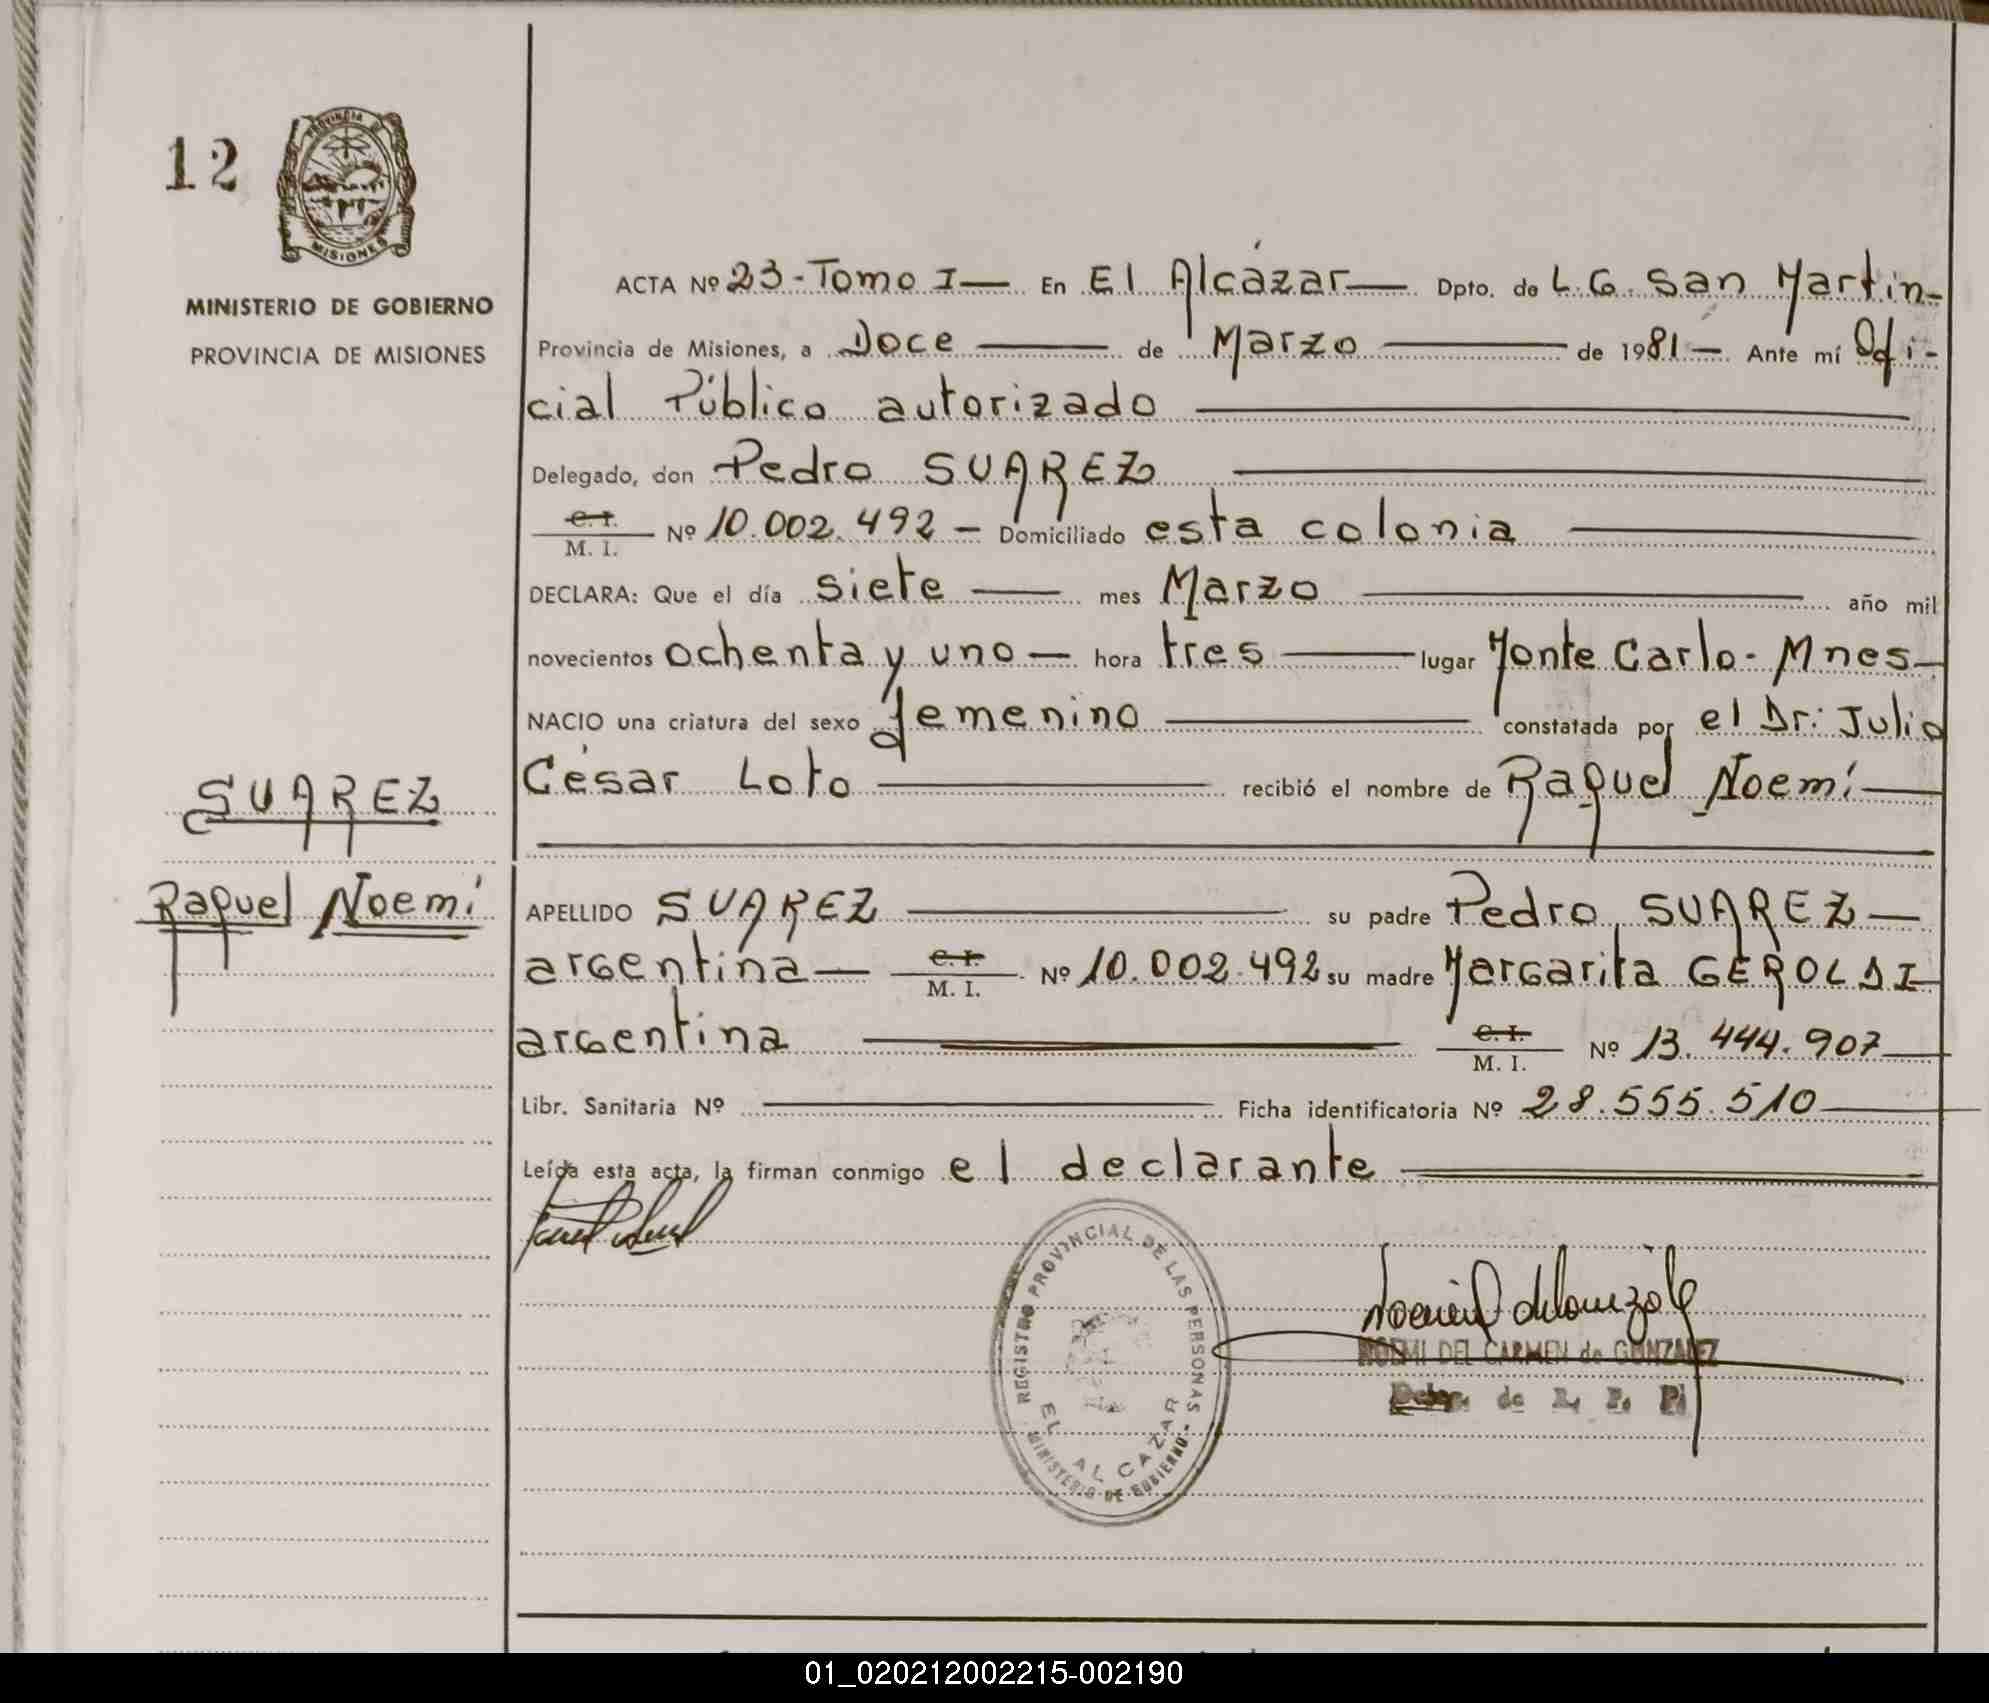 12
PROVINCIA DE
MISIONES
MINISTERIO DE GOBIERNO
PROVINCIA DE MISIONES
SUAREZ
Raquel Noemí
ACTA Nº 23-Tomo I— En El Alcázar— Dpto. de L.G. San Martin-
Provincia de Misiones, a Doce — de Marzo — de 1981— Ante mí Ofi-
cial Público autorizado —
Delegado, don Pedro SUAREZ —
C. I.
M. I. Nº 10.002.492 — Domiciliado esta colonia —
DECLARA: Que el día siete — mes Marzo — año mil
novecientos ochenta y uno — hora tres — lugar Monte Carlo- Mnes—
NACIO una criatura del sexo femenino — constatada por el Dr: Julio
César Loto — recibió el nombre de Raquel Noemí —
APELLIDO SUAREZ — su padre Pedro SUAREZ —
argentina — C. I.
M. I. Nº 10.002.492 su madre Margarita GEROLDI—
argentina — C. I.
M. I. Nº 13.444.907—
Libr. Sanitaria Nº — Ficha identificatoria Nº 28.555.510—
Leída esta acta, la firman conmigo el declarante —
REGISTRO PROVINCIAL DE LAS PERSONAS
EL ALCAZAR
MINISTERIO DE GOBIERNO
NOEMI DEL CARMEN de GONZALEZ
Deleg. de R. P. P.
01_020212002215-002190